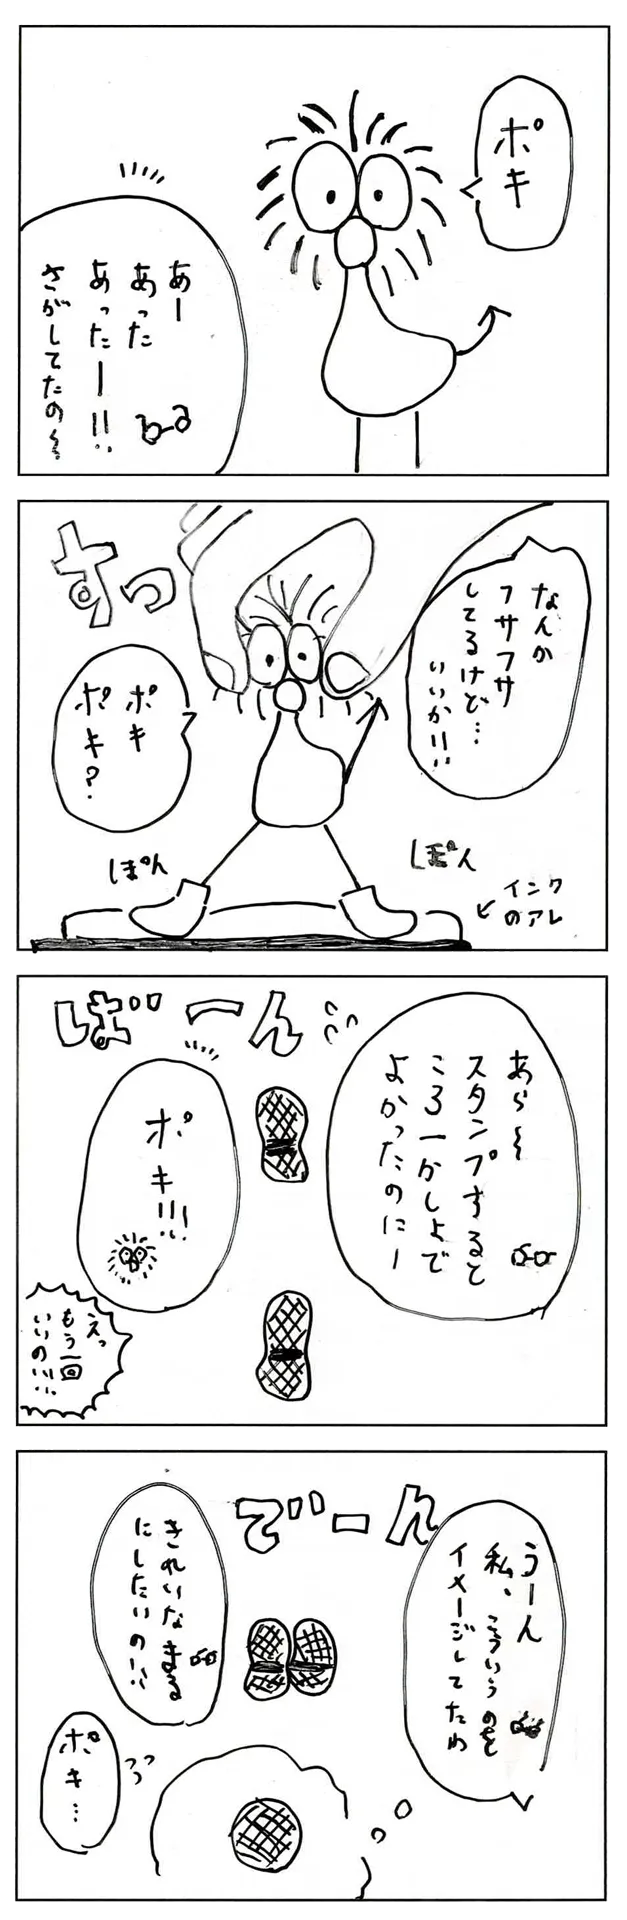 ポキ
あー
あった
あったー!!
さがしてたの〜
なんか
フサフサ
してるけど…
いいか!!
すっ
ポキ
ポキ?
しぽん
しぽん
インク
のアレ
ばーん
あら〜
スタンプすると
ころ一かしょで
よかったのにー
ポキ!!!
えっ
もう一回
いいの!!
でーん
うーん
私、こういうのを
イメージしてたわ
きれいなまる
にしたいの!!
ポキ…